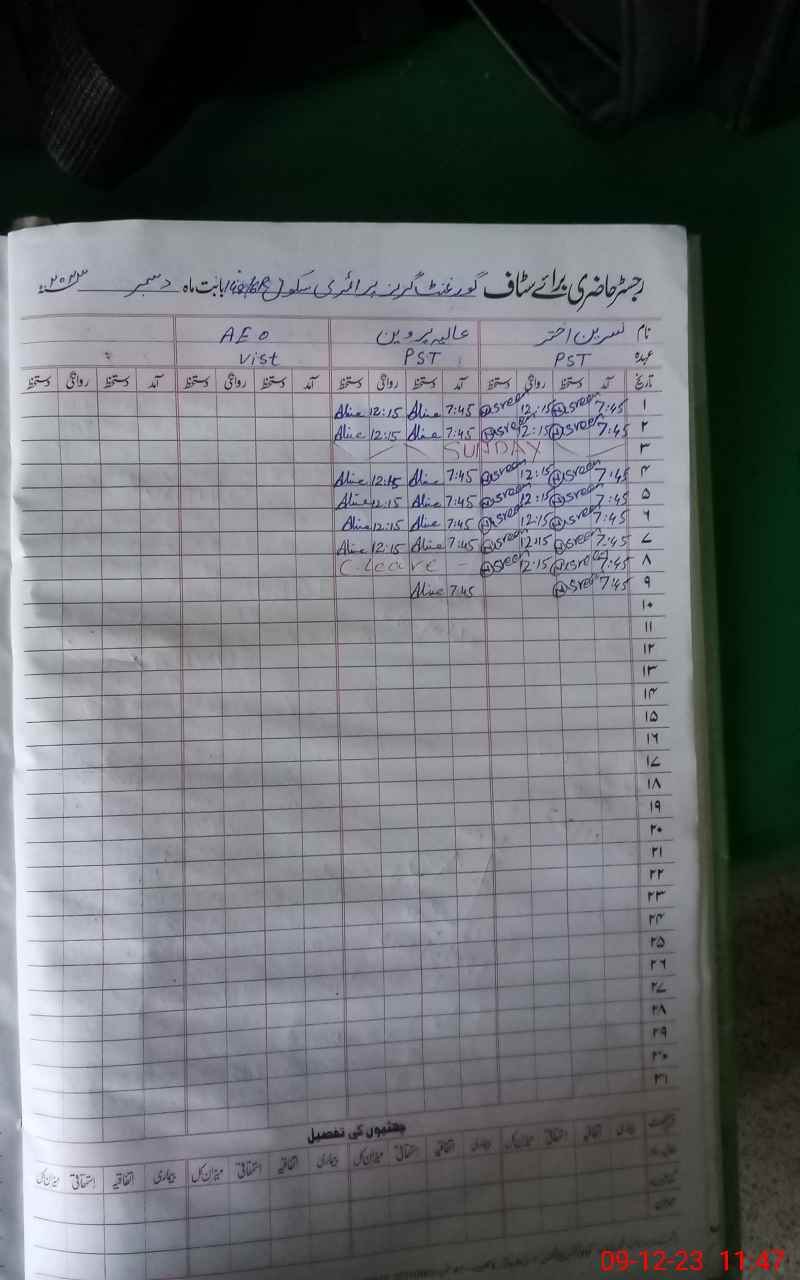 رجسٹر حاضری برائے سٹاف گورنمنٹ گرلز پرائمری سکول بابت ماہ دسمبر ۲۰۲۳ء
نام نسرین اختر عالیہ پروین AEO
عہدہ PST PST Vist
تاریخ آمد دستخط روانگی دستخط آمد دستخط روانگی دستخط آمد دستخط روانگی دستخط آمد دستخط روانگی دستخط
۱ 7:45 Nasreen 12:15 Nasreen 7:45 Alia 12:15 Alia
۲ 7:45 Nasreen 12:15 Nasreen 7:45 Alia 12:15 Alia
۳ SUNDAY
۴ 7:45 Nasreen 12:15 Nasreen 7:45 Alia 12:15 Alia
۵ 7:45 Nasreen 12:15 Nasreen 7:45 Alia 12:15 Alia
۶ 7:45 Nasreen 12:15 Nasreen 7:45 Alia 12:15 Alia
۷ 7:45 Nasreen 12:15 Nasreen 7:45 Alia 12:15 Alia
۸ 7:45 Nasreen 12:15 Nasreen C.Leave
۹ 7:45 Nasreen 7:45 Alia
۱۰
۱۱
۱۲
۱۳
۱۴
۱۵
۱۶
۱۷
۱۸
۱۹
۲۰
۲۱
۲۲
۲۳
۲۴
۲۵
۲۶
۲۷
۲۸
۲۹
۳۰
۳۱
چھٹیوں کی تفصیل
بیماری اتفاقیہ استحقاقی میزان کل بیماری اتفاقیہ استحقاقی میزان کل بیماری اتفاقیہ استحقاقی میزان کل بیماری اتفاقیہ استحقاقی میزان کل
09-12-23 11:47